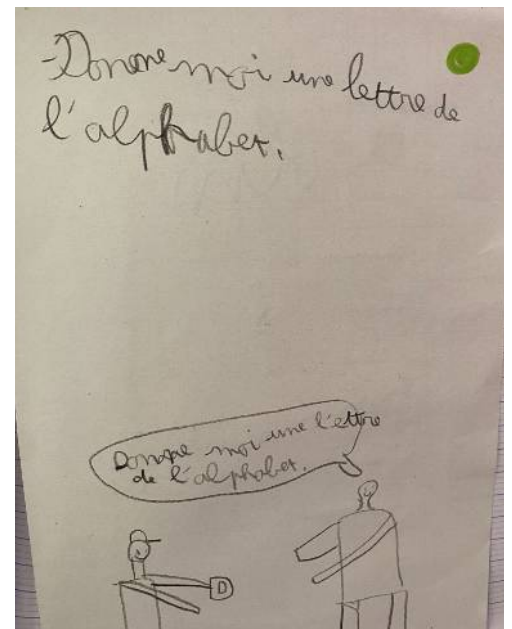 -Donne moi une lettre de
l'alphabet.
Donne moi une l'ettre
de l'alphabet.
D